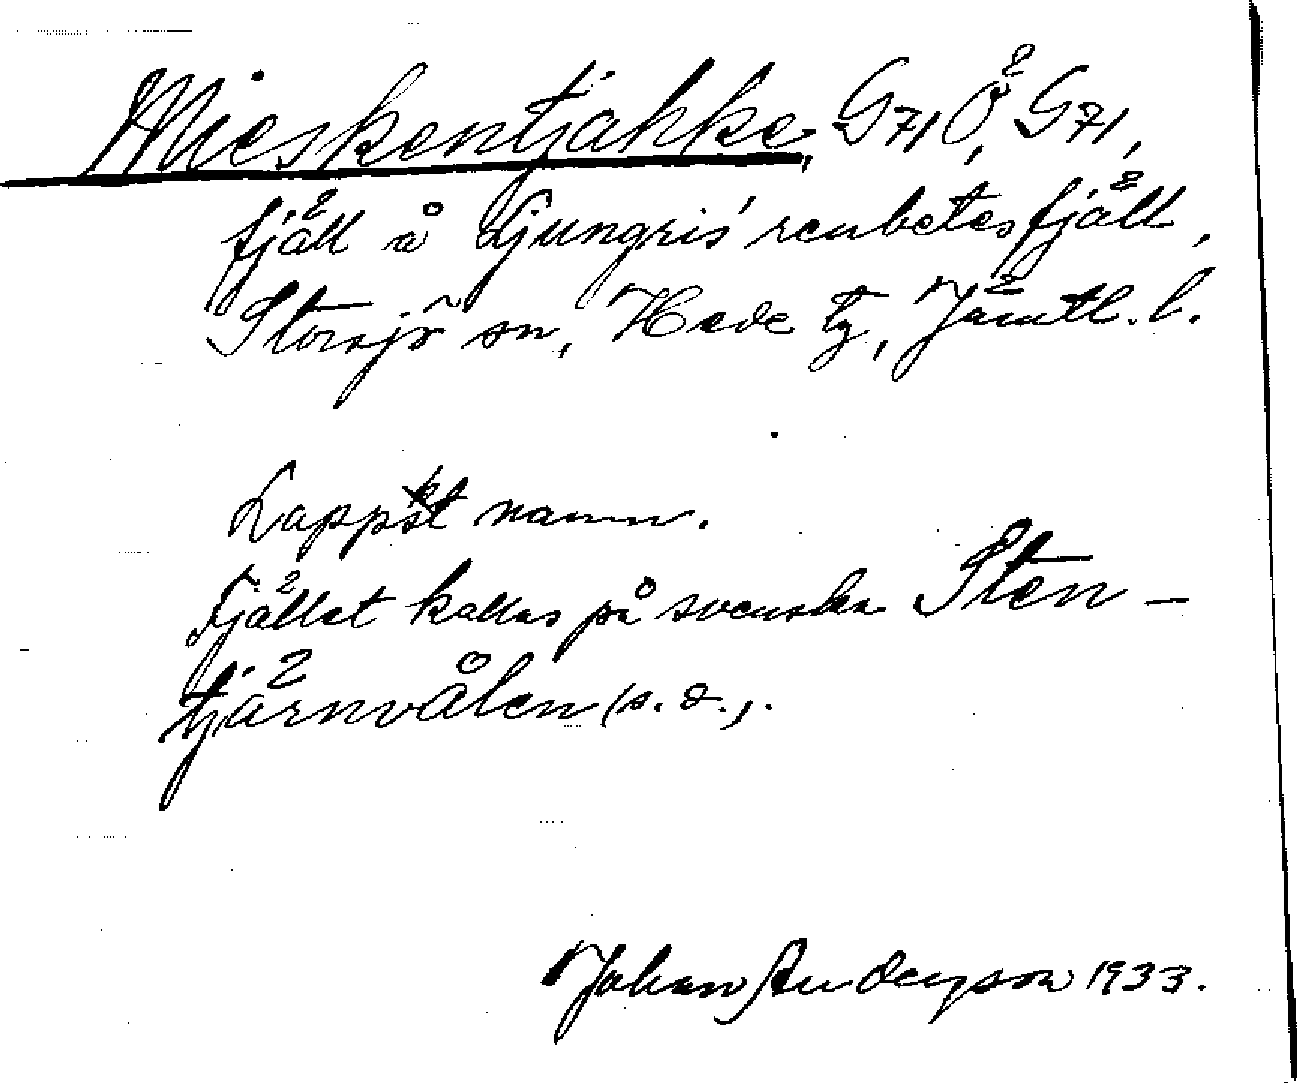 Mieskentjahke, G71 Ö, G71,
fjäll å Ljungris' renbetesfjäll,
Storsjö sn, Hede tg, Jämtl. l.
Lappskt namn.
Fjället kallas på svenska Sten-
tjärnvålen (s. d.).
Johan Anderson 1933.